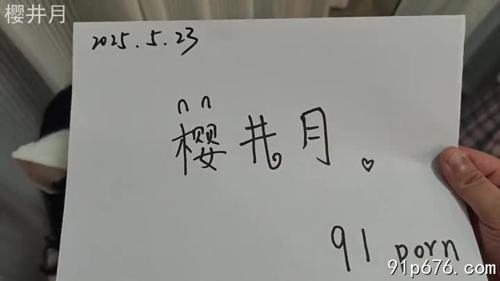 樱井月
2025.5.23
樱井月
91 porn
91p676.com